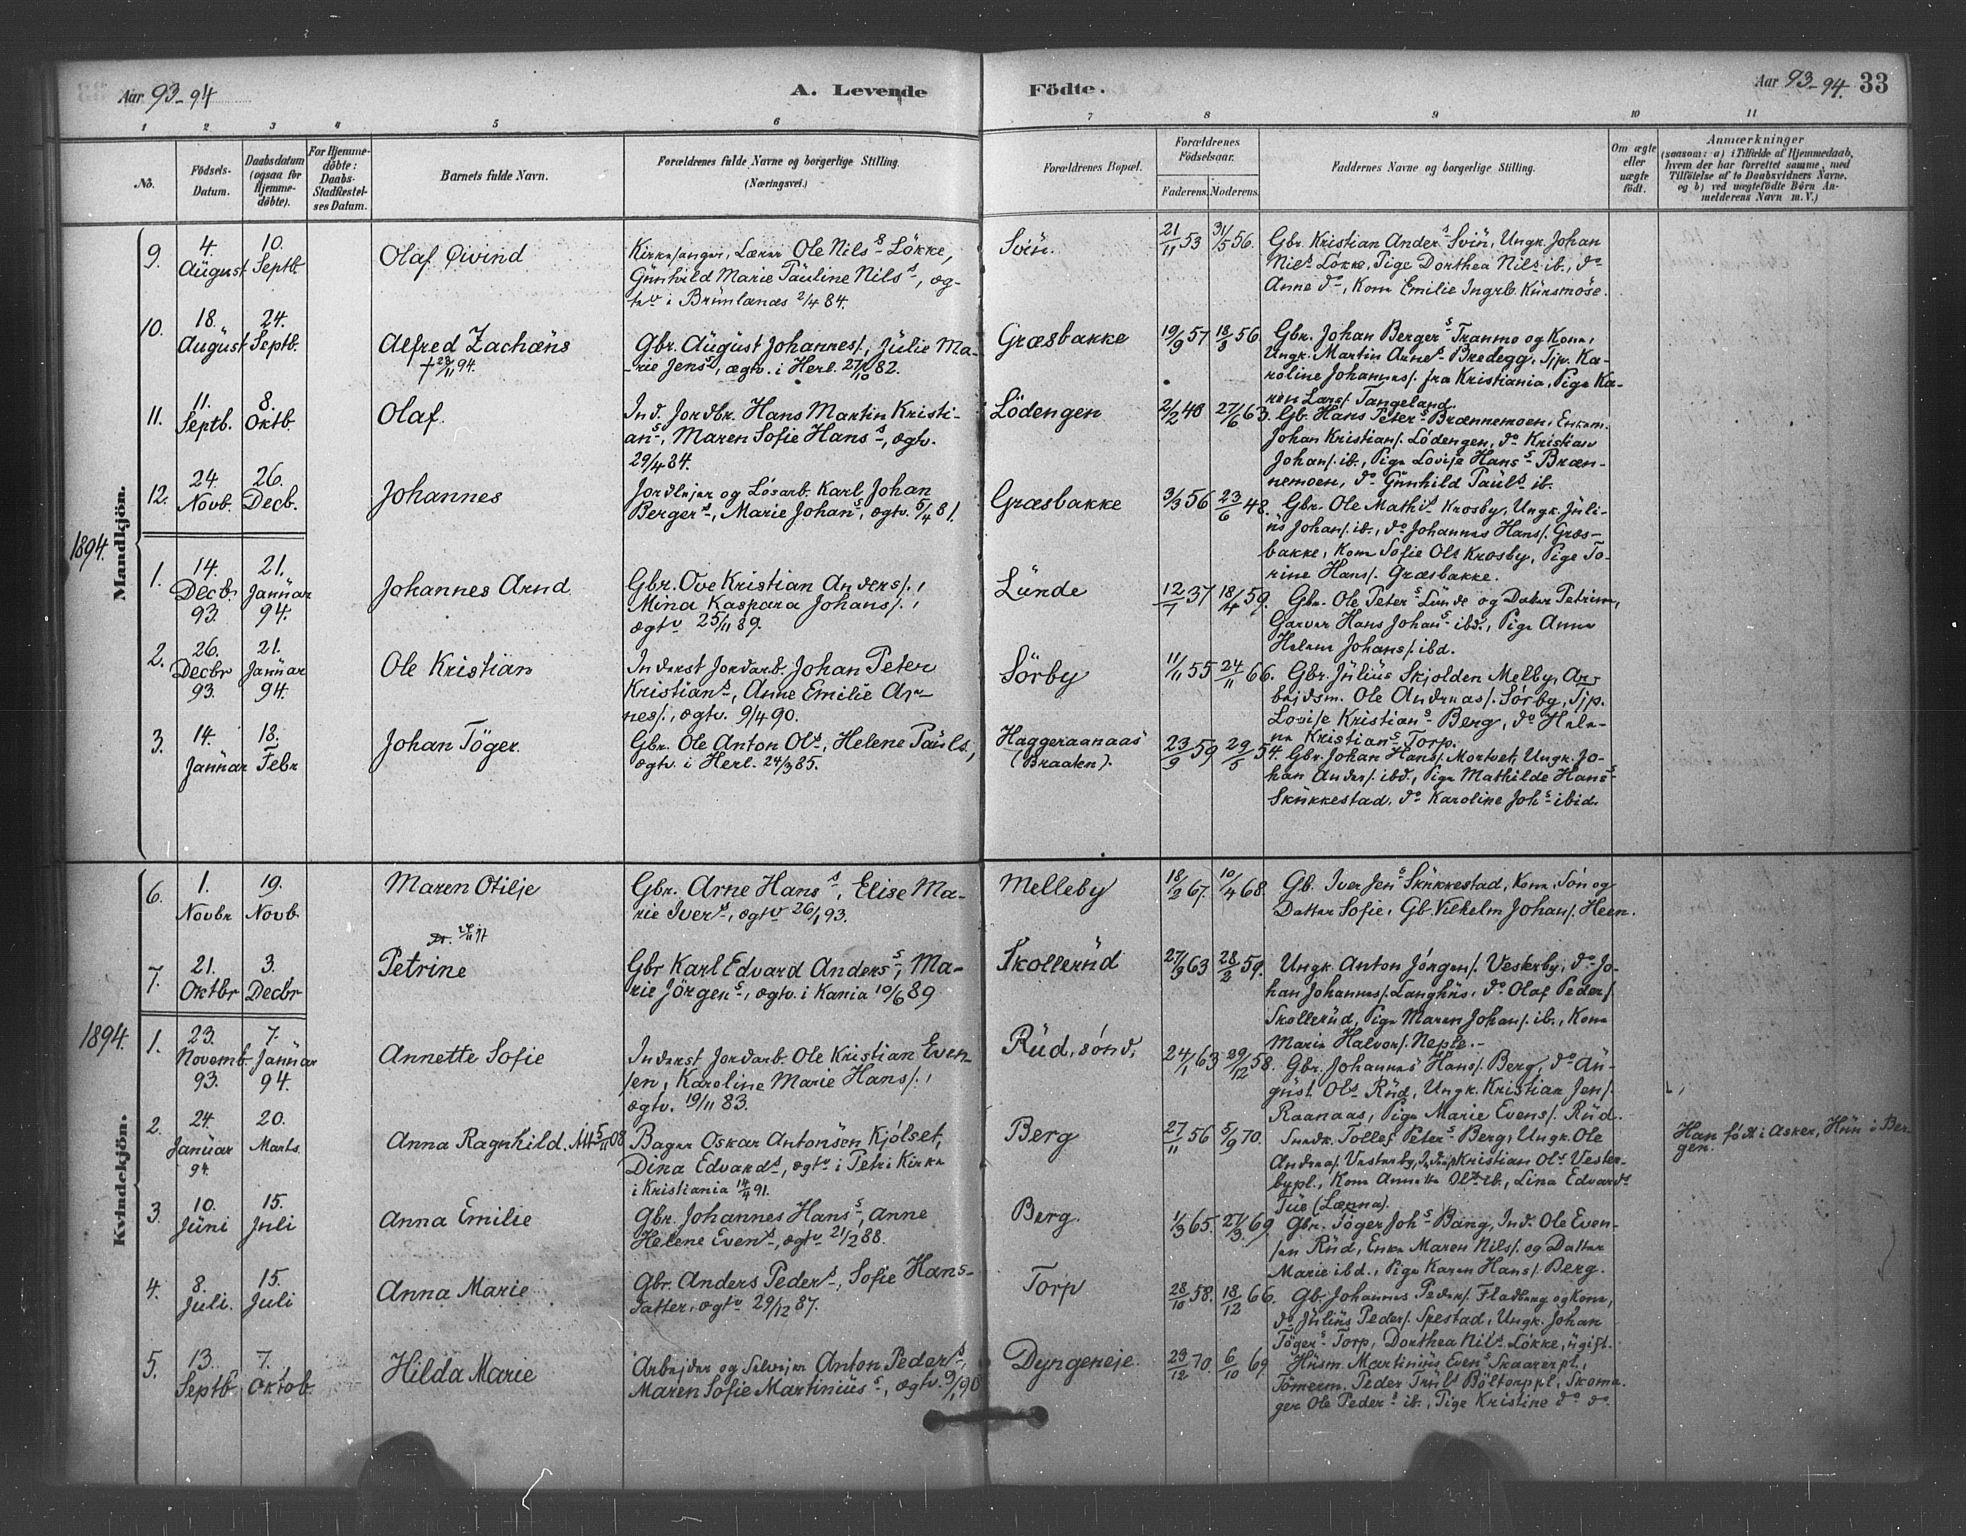 Aar 93-94
A. Levende
Födte.
Aar 93-94. 33
1 2 3 4 5 6 7 8 9 10 11
No.
Födsels-Datum.
Daabsdatum (ogsaa for Hjemme-döbte).
For Hjemme-döbte: Daabs-Stadfæstel-ses Datum.
Barnets fulde Navn.
Forældrenes fulde Navne og borgerlige Stilling.
(Næringsvei.)
Forældrenes Bopæl.
Forældrenes Födselsaar.
Faderens. Moderens.
Faddernes Navne og borgerlige Stilling.
Om ægte eller uægte födt.
Anmærkninger
(saasom: a) i Tilfælde af Hjemmedaab,
hvem der har forrettet samme, med
Tilföielse af to Daabsvidners Navne,
og b) ved uægtefödte Börn An-
melderens Navn m. V.)
Mandkjön.
9. 4. August 10. Septb. Olaf Øivind
Kirkesanger, Lærer Ole Nils s Lökke,
Gunhild Marie Pauline Nils d, æg-
tv i Brunlanes 2/4 84.
Svin. 21/11 53 31/5 56.
Gbr. Kristian Anders Svin, Ungk. Johan
Nils Løkke, Pige Dorthea Nils ib., do
Anne do, Kone Emilie Ingeb. Kursmose.
10. 18. August 24. Septb. Alfred Zachæus
† 29/11 94.
Gbr. August Johannes/., Julie Ma-
rie Jens d, ægtv. i Herl. 27/10 82.
Græsbakke 19/9 57 18/8 56
Gbr. Johan Berger s Tranmo og Kone,
Ungk. Martin Arne s Bredegg, Tjp. Ka-
roline Johannes/. fra Kristiania, Pige Ka-
ren Lars/. Tangeland.
11. 11. Septb. 8. Oktb. Olaf
Ind. Jordbr. Hans Martin Kristi-
an s, Maren Sofie Hans d, ægtv.
29/4 84.
Lödengen 2/2 40 27/6 63.
Gb. Hans Peter s Brænnemoen, Enkem.
Johan Kristian/. Lödengen, do Kristian
Johan/. ib., Pige Lovise Hans s Bræn-
nemoen, do Gunhild Paul s ib.
12. 24. Novb. 26. Decb. Johannes
Jordlejer og Løsarb. Karl Johan
Berger s, Marie Johan s, ægtv. 5/4 81.
Græsbakke 3/3 56 23/6 48.
Gbr. Ole Mathis Krosby, Ungk. Juli-
us Johan/. ib., do Johannes Hans/. Græs-
bakke, Kone Sofie Ols Krosby, Pige To-
rine Hans/. Græsbakke.
1894.
1. 14. Decb. 93. 21. Januar 94. Johannes Arnd
Gbr. Ove Kristian Anders/.,
Mina Kaspara Johans/.,
ægtv 25/11 89.
Lunde 12/7 37 18/4 59.
Gbr. Ole Peter s Lunde og Datter Petrine,
Garver Hans Johan s ibd., Pige Anne
Helene Johans/. ibd.
2. 26. Decbr 93. 21. Januar 94. Ole Kristian
Inderst Jordarb. Johan Peter
Kristian s, Anne Emilie Ar-
nes/., ægtv. 9/4 90.
Sörby 11/11 55 24/11 66.
Gbr. Julius Skjolden Melby, Ar-
bejdsm. Ole Andreas/. Sörby, Tjp.
Lovise Kristian s Berg, do Hele-
ne Kristian s Torp.
3. 14. Januar 18. Febr Johan Töger.
Gbr. Ole Anton Ol s, Helene Pauls,
ægtv. i Herl. 24/3 85.
Haggeraanaas
(Braaten). 23/9 59 29/5 54.
Gbr. Johan Hans/. Mortvet, Ungk. Jo-
han Anders/. ibd., Pige Mathilde Hans s
Skukkestad, do Karoline Joh s ibid.
Kvindekjön.
6. 1. Novbr 19. Novb. Maren Otilje
Gbr. Arne Hans s, Elise Ma-
rie Iver s, ægtv 26/1 93.
Melleby 18/2 67. 10/4 68.
Gb. Iver Jens Skukkestad, Kone, Søn og
Datter Sofie, Gb. Vilhelm Johan/. Heen.
7. 21. Oktbr 3. Decbr Petrine
Gbr Karl Edvard Anders s, Ma-
rie Jörgen s, ægtv. i Kania 10/6 89
Skollerud 27/9 63 28/2 59.
Ungk. Anton Jörgen/. Vesterby, do Jo-
han Johannes/. Langhus, do Olaf Peder/.
Skollerud, Pige Maren Johan/. ib., Kone
Marie Halvor/. Neple.
1894.
1. 23. Novemb. 93. 7. Januar 94. Annette Sofie
Inderst Jordarb. Ole Kristian Even-
sen, Karoline Marie Hans/.,
ægtv. 19/11 83.
Rud, sønd. 24/1 63 29/12 58.
Gbr. Johannes Hans/. Berg, do Au-
gust Ols Rud, Ungk. Kristian Jen/.
Raanaas, Pige Marie Evens/. Rud.
2. 24. Januar 94. 20. Marts. Anna Ragnhild. Att 5/11 08
Bager Oskar Antonsen Kjölset,
Dina Edvard d, ægtv i Petri Kirke
i Kristiania 14/4 91.
Berg 27/11 56 5/9 70.
Snedk. Tollef Peter s Berg, Ungk. Ole
Andreas/. Vesterby, Inderst Kristian Ols Vester-
bypl., Kone Annette Ols ib., Lina Edvards
Tue (Lænna).
Han født i Asker, Hun i Ber-
gen.
3. 10. Juni 15. Juli Anna Emilie
Gbr. Johannes Hans s, Anne
Helene Even d, ægtv 21/2 88.
Berg. 1/3 65. 27/3 69.
Gbr. Töger Joh s Bang, Ind. Ole Even-
sen Rud, Enke Maren Nils/. og Datter
Marie ibd., Pige Karen Hans/. Berg.
4. 8. Juli. 15. Juli Anna Marie
Gbr. Anders Peder s, Sofie Hans-
datter, ægtv 29/12 87.
Torp 28/10 58. 18/12 66.
Gb. Johannes Peders/. Fladberg og Kone,
do Julius Peder/. Spestad, Ungk. Johan
Töger s Torp, Dorthea Nils Løkke, ugift.
5. 13. Septb 7. Oktob. Hilda Marie
Arbejder og Selvejer Anton Peder s,
Maren Sofie Martinius s, ægtv. 9/1 90
Dyngeneje. 29/12 70. 6/10 69.
Husm. Martinius Even s Skaarerpl.,
Tömerm. Peder Truls Böltorppl., Skoma-
ger Ole Peder s ib., Pige Kristine do do.